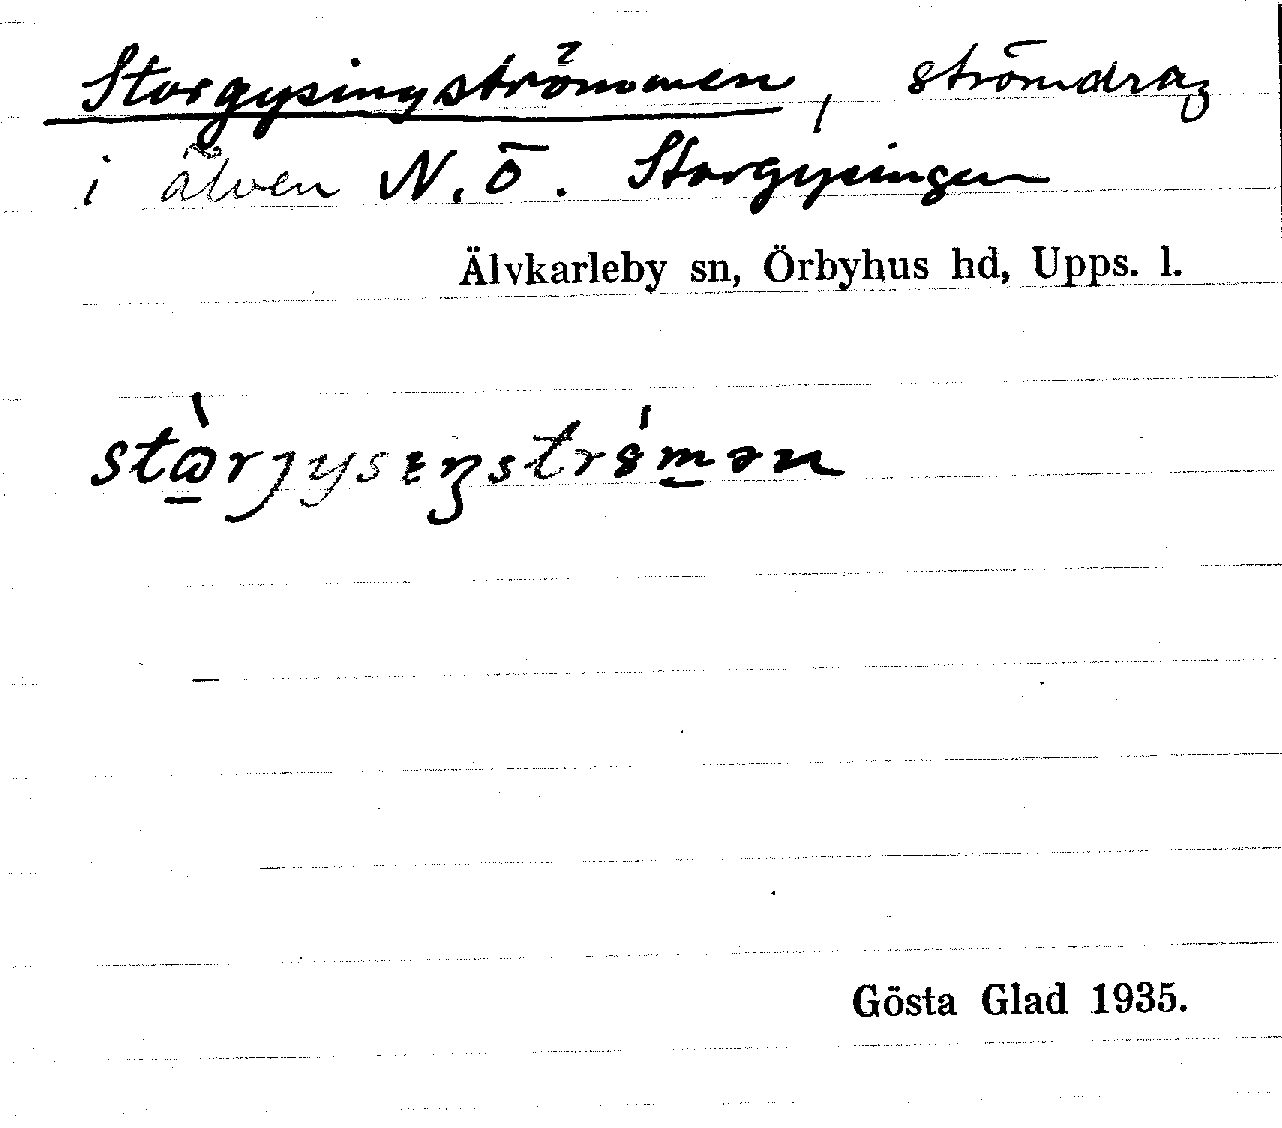 Storgysingströmmen, strömdrag
i älven N.Ö. Storgysingen
Älvkarleby sn, Örbyhus hd, Upps. l.
Gösta Glad 1935.